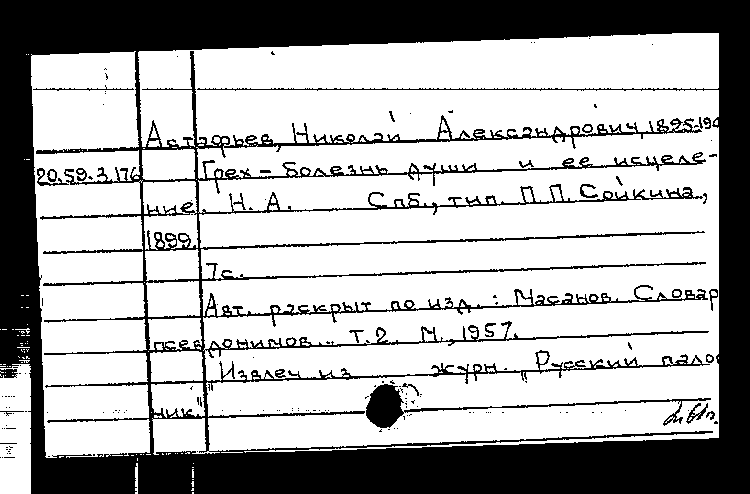 Астафьев, Николай Александрович, 1825-190
20.59.3.176 Грех – болезнь души и ее исцеле-
ние. Н. А. Спб., тип. П. П. Сойкина,
1899.
7с.
Авт. раскрыт по изд.: Масанов. Словар
псевдонимов... Т.2. М., 1957.
"Извлеч из журн. „Русский палом
ник."